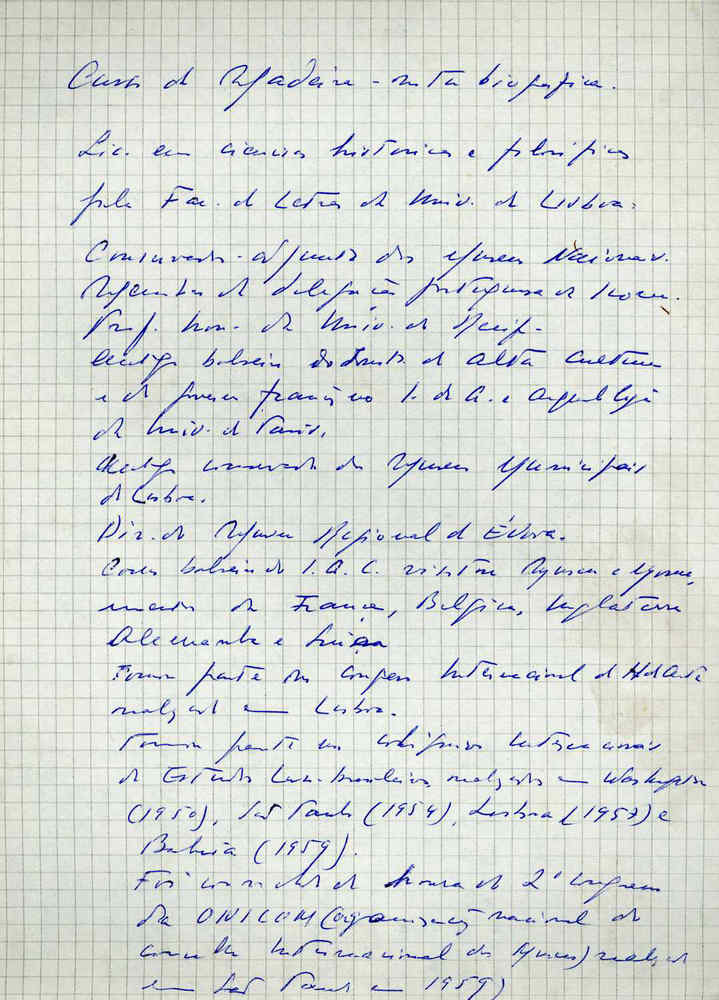 Curso da Madeira - nota biografica.
Lic. em ciencias historicas e filosoficas
pela Fac. de Letras da Univ. de Lisboa.
Conservador-adjunto dos Museus Nacionais.
Membro da delegação portuguesa do Icom.
Prof. hon. da Univ. do Recife
Antigo bolseiro do Instituto de Alta Cultura
e do governo francês no I. de A. e Arqueologia
da Univ. de Paris.
Antigo conservador dos Museus Municipais
de Lisboa.
Dir. do Museu Regional d Évora.
Como bolseiro do I. A. C. visitou Museus e Monu-
mentos da França, Belgica, Inglaterra
Alemanha e Suiça
Tomou parte no congresso Internacional d H da Arte
realizado em Lisboa.
Tomou parte nos coloquios internacionais
de Estudos Luso-brasileiros realizados em Washington
(1950), São Paulo (1954), Lisboa (1957) e
Bahia (1959).
Foi convidado de honra do 2º congresso
da ONICOM (organização nacional do
conselho Internacional dos Museus) realizado
em São Paulo em 1959)